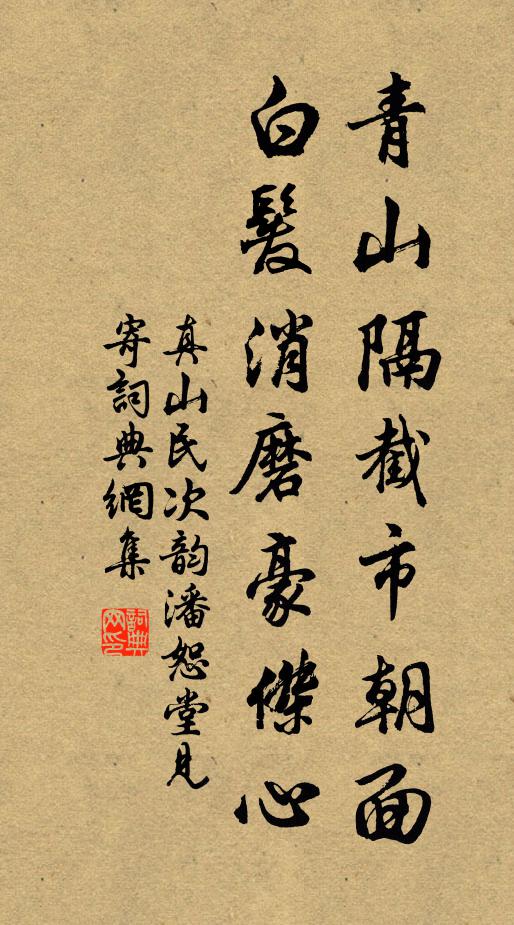 青山隔截市朝面
白髮消磨豪傑心
真山民次韵潘恕堂見
寄詞典網集
詞典
网印